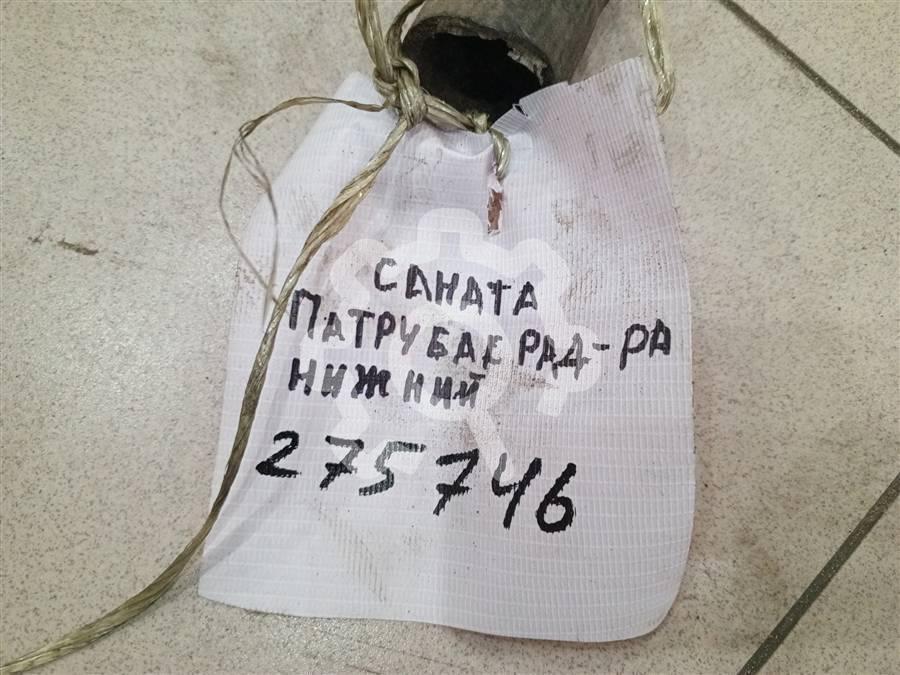 САНАТА
ПАТРУБАЕ РАД-РА
НИЖНИЙ
275746